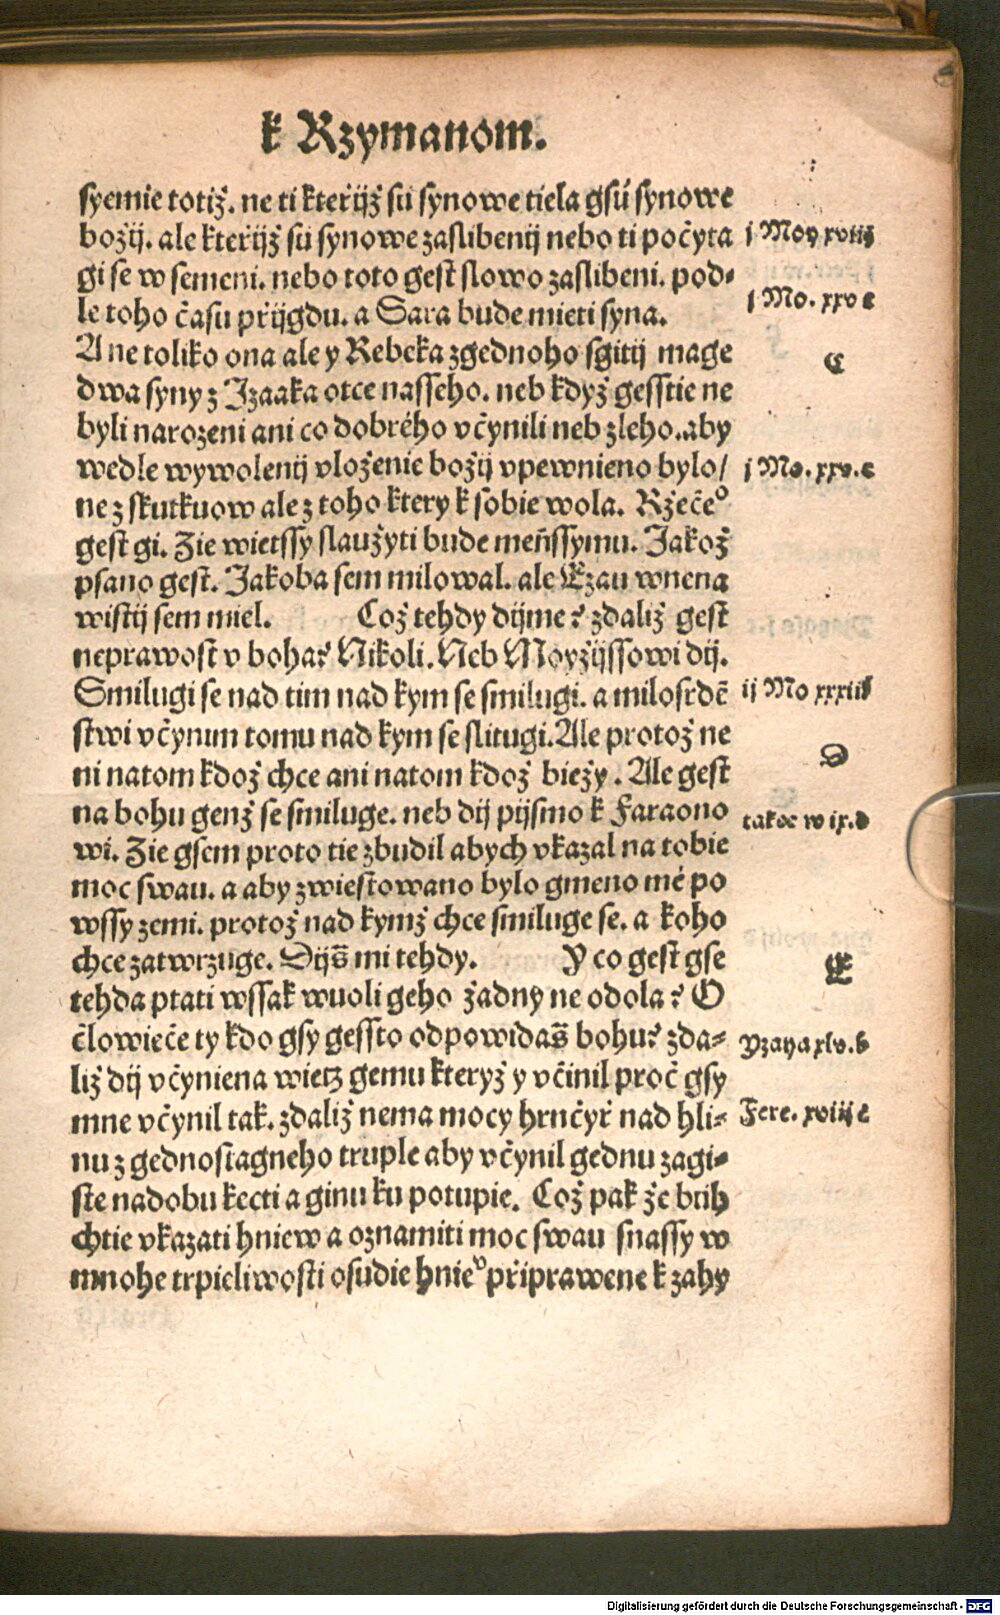 k Rzymanom.
syemie totiž. ne ti kteřijž sú synowe tiela gsú synowe
božij. ale kteřijž sú synowe zaslibenij nebo ti počyta
gi se w semeni. nebo toto gest slowo zaslibeni. pod-
le toho času přijgdu. a Sara bude mieti syna.
A ne toliko ona ale y Rebeka z gednoho sgitij mage
dwa syny z Izaaka otce nasseho. neb když gesstie ne
byli narozeni ani co dobrého včynili neb zleho. aby
wedle wywolenij vloženie božij vpewnieno bylo/
ne z skutkuow ale z toho ktery k sobie wola. Rzečeº
gest gi. Zie wietssy slaužyti bude meňssymu. Jakož
psano gest. Jakoba sem milowal. ale Ezau w nena
wistij sem miel. Což tehdy dijme? zdaliž gest
neprawost v boha? Nikoli. Neb Moyžijssowi dij.
Smilugi se nad tim nad kym se smilugi. a milosrdē
stwi včynim tomu nad kym se slitugi. Ale protož ne
ni na tom kdož chce ani na tom kdož biežy. Ale gest
na bohu genž se smiluge. neb dij pijsmo k Faraono
wi. Zie gsem proto tie zbudil abych vkazal na tobie
moc swau. a aby zwiestowano bylo gmeno mé po
wssy zemi. protož nad kymž chce smiluge se. a koho
chce zatwrzuge. Dijš mi tehdy. Y co gest gse
tehda ptati wssak wuoli geho žadny ne odola? O
člowieče ty kdo gsy gessto odpowidaš bohu? zda-
liž dij včyniena wietz gemu kteryž y včinil proč gsy
mne včynil tak. zdaliž nema mocy hrnčyř nad hli-
nu z gednostagneho truple aby včynil gednu zagi-
ste nadobu k ecti a ginu ku potupie. Což pak že buh
chtie vkazati hniew a oznamiti moc swau snassy w
mnohe trpieliwosti osudie hnieº připrawene k zahy
j Moy xviij
j Mo. xxv c
C
j Mo. xxv. c
ij Mo xxxiii
D
takee w ix. d
E
Yzaya xlv. b
Jere. xviij c
Digitalisierung gefördert durch die Deutsche Forschungsgemeinschaft - DFG